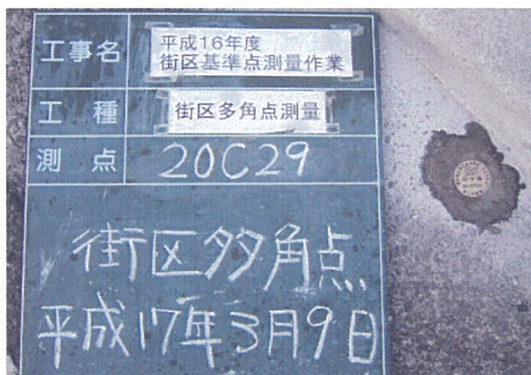 工事名
平成16年度
街区基準点測量作業
工 種
街区多角点測量
測 点
20C29
街区多角点
平成17年3月9日